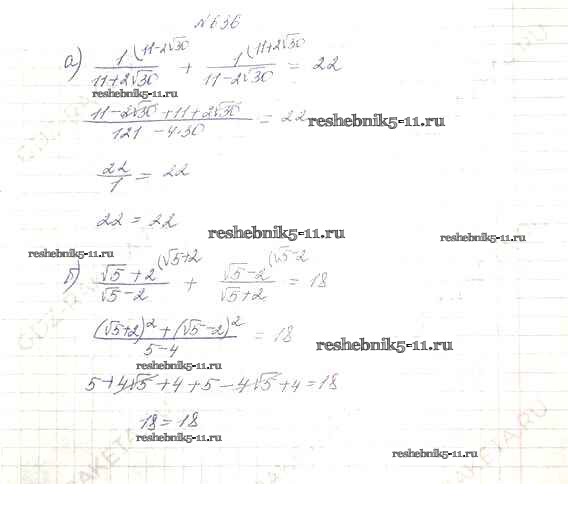 № 636
а) 1 (11-2√30 / 11+2√30 + 1 (11+2√30 / 11-2√30 = 22
reshebnik5-11.ru
11-2√30 +11+2√30 / 121 -4·30 = 22
reshebnik5-11.ru
22/1 = 22
22 = 22
reshebnik5-11.ru
reshebnik5-11.ru
reshebnik5-11.ru
б) √5+2 (√5+2 / √5-2 + √5-2 (√5-2 / √5+2 = 18
(√5+2)² + (√5-2)² / 5-4 = 18
reshebnik5-11.ru
reshebnik5-11.ru
5+4√5+4+5-4√5+4=18
18=18
reshebnik5-11.ru
reshebnik5-11.ru